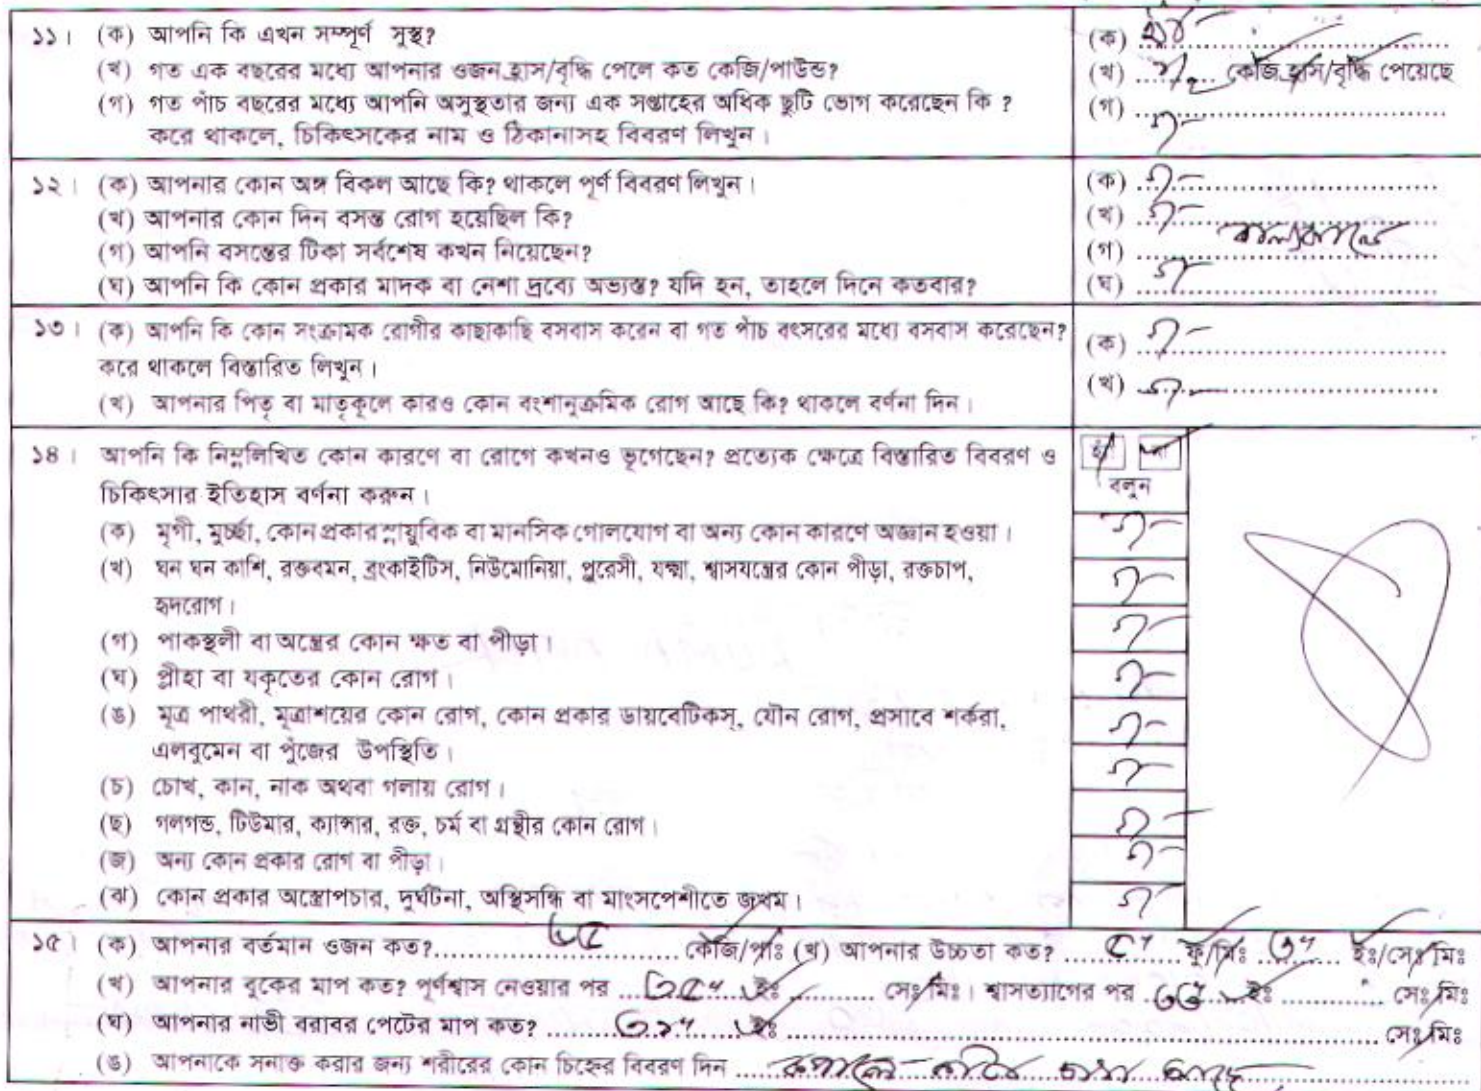 ১১। (ক) আপনি কি এখন সম্পূর্ণ সুস্থ? (ক) হ্যাঁ
(খ) গত এক বছরের মধ্যে আপনার ওজন হ্রাস/বৃদ্ধি পেলে কত কেজি/পাউন্ড? (খ) না কেজি হ্রাস/বৃদ্ধি পেয়েছে
(গ) গত পাঁচ বছরের মধ্যে আপনি অসুস্থতার জন্য এক সপ্তাহের অধিক ছুটি ভোগ করেছেন কি ? (গ) না
করে থাকলে, চিকিৎসকের নাম ও ঠিকানাসহ বিবরণ লিখুন।
১২। (ক) আপনার কোন অঙ্গ বিকল আছে কি? থাকলে পূর্ণ বিবরণ লিখুন। (ক) না
(খ) আপনার কোন দিন বসন্ত রোগ হয়েছিল কি? (খ) না
(গ) আপনি বসন্তের টিকা সর্বশেষ কখন নিয়েছেন? (গ) বাল্যকালে
(ঘ) আপনি কি কোন প্রকার মাদক বা নেশা দ্রব্যে অভ্যস্ত? যদি হন, তাহলে দিনে কতবার? (ঘ) না
১৩। (ক) আপনি কি কোন সংক্রামক রোগীর কাছাকাছি বসবাস করেন বা গত পাঁচ বৎসরের মধ্যে বসবাস করেছেন? (ক) না
করে থাকলে বিস্তারিত লিখুন।
(খ) আপনার পিতৃ বা মাতৃকূলে কারও কোন বংশানুক্রমিক রোগ আছে কি? থাকলে বর্ণনা দিন। (খ) না
১৪। আপনি কি নিম্নলিখিত কোন কারণে বা রোগে কখনও ভূগেছেন? প্রত্যেক ক্ষেত্রে বিস্তারিত বিবরণ ও হ্যাঁ না
চিকিৎসার ইতিহাস বর্ণনা করুন। বলুন
(ক) মৃগী, মুর্চ্ছা, কোন প্রকার স্নায়ুবিক বা মানসিক গোলযোগ বা অন্য কোন কারণে অজ্ঞান হওয়া। না
(খ) ঘন ঘন কাশি, রক্তবমন, ব্রংকাইটিস, নিউমোনিয়া, প্লুরেসী, যক্ষ্মা, শ্বাসযন্ত্রের কোন পীড়া, রক্তচাপ, না
হৃদরোগ।
(গ) পাকস্থলী বা অন্ত্রের কোন ক্ষত বা পীড়া। না
(ঘ) প্লীহা বা যকৃতের কোন রোগ। না
(ঙ) মূত্র পাথরী, মূত্রাশয়ের কোন রোগ, কোন প্রকার ডায়বেটিকস্, যৌন রোগ, প্রসাবে শর্করা, না
এলবুমেন বা পুঁজের উপস্থিতি।
(চ) চোখ, কান, নাক অথবা গলায় রোগ। না
(ছ) গলগন্ড, টিউমার, ক্যান্সার, রক্ত, চর্ম বা গ্রন্থীর কোন রোগ। না
(জ) অন্য কোন প্রকার রোগ বা পীড়া। না
(ঝ) কোন প্রকার অস্ত্রোপচার, দুর্ঘটনা, অস্থিসন্ধি বা মাংসপেশীতে জখম। না
১৫। (ক) আপনার বর্তমান ওজন কত? ৬৫ কেজি/পাঃ (খ) আপনার উচ্চতা কত? ৫" ফু/মিঃ ৩" ইঃ/সেঃ মিঃ
(খ) আপনার বুকের মাপ কত? পূর্ণশ্বাস নেওয়ার পর ৩৫" ইঃ সেঃ মিঃ। শ্বাসত্যাগের পর ৩৩" ইঃ সেঃ মিঃ
(ঘ) আপনার নাভী বরাবর পেটের মাপ কত? ৩২" ইঃ সেঃ মিঃ
(ঙ) আপনাকে সনাক্ত করার জন্য শরীরের কোন চিহ্নের বিবরণ দিন কপালে কাটা দাগ আছে